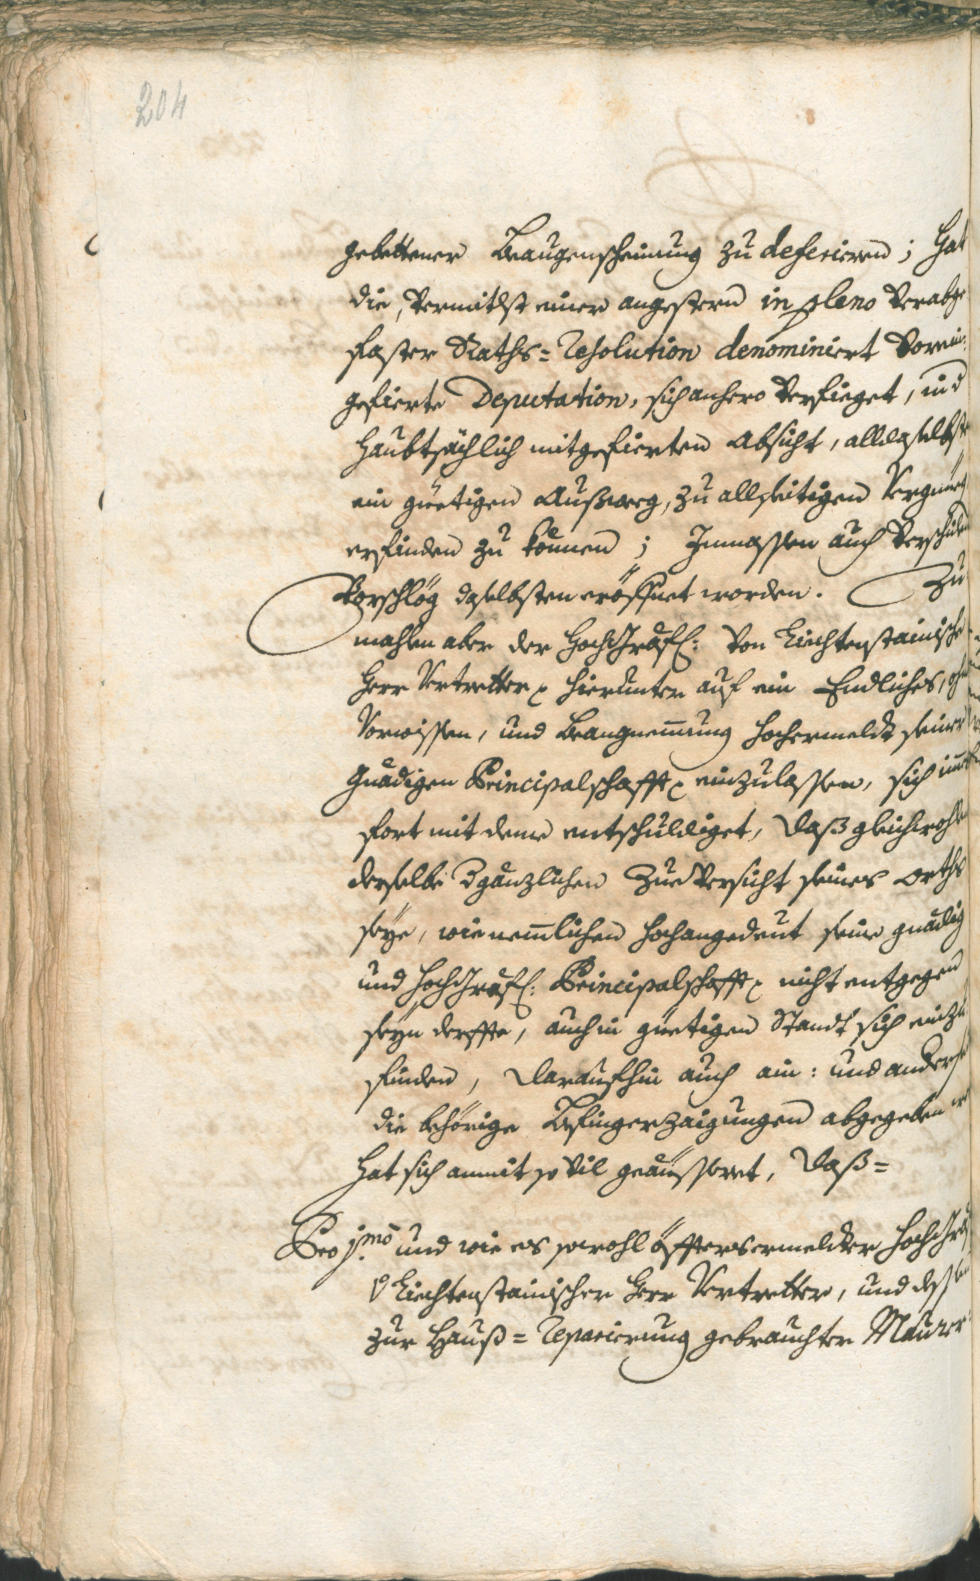 204
gebettener Beaugenscheinung zu deferieren; Hat
die, vermitlst einer angestern in pleno verabge
faster Raths=Resolution denominiert vorein:
gefierte Deputation, sich anhero verfieget, in d
haubtsächlich mitgefierten Absicht, alldaselbste
ein güetigen Außweeg, zu allseitigen Vergnüeg
erfinden zu können; Inmassen auch verschiden
Vorschläg daselbsten eröffnet worden. Zu
mahlen aber der Hochgräfl: von Liechtenstainische
Herr Vertretter hierunter auf ein Endliches, ohne
Vorwissen, und Beangnemung hochermeldt seiner
Gnädigen Principalschafft einzulassen, sich im
fort mit deme entschuldiget, daß gleichwohlen
derselbe d gänzlichen Zueversicht seines orths
seye, wie nemlichen hochangedeut seine gnädig
und hochgräfl: Principalschafft nicht entgegen
seyn derffte, auch in güetigen Standt sich einzu
finden, daraufhin auch ain: und anderse
die behörige Afingerzaigungen abgegeben
hat sich anmit so vil geäusseret, daß=
Pro 1.mo und wie es sowohl öffters ermeldter Hochgräfl
v Liechtenstainischer Herr Vertretter, und dessen
zur Hauß=Reparierung gebrauchter Maurer